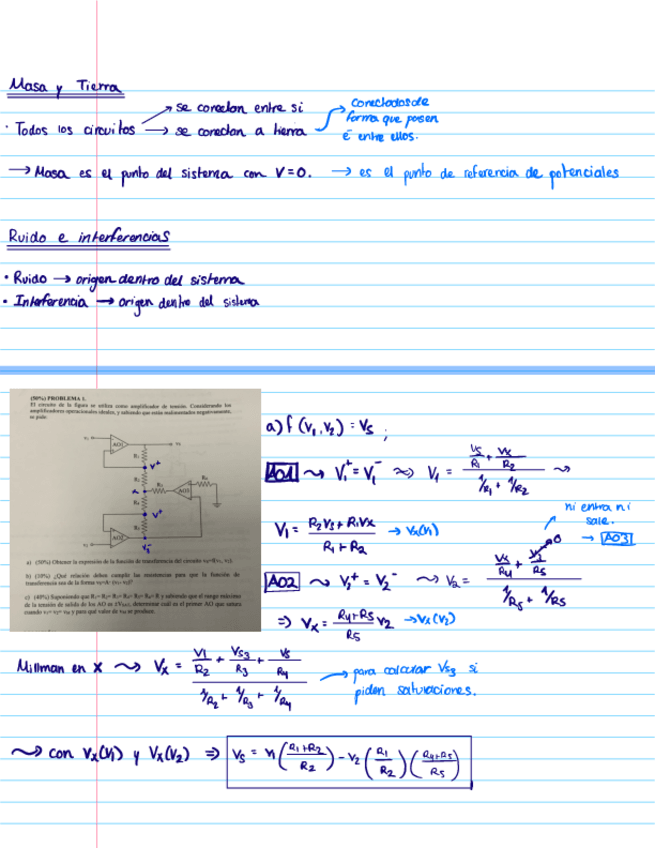 Masa y Tierra
se conectan entre si
· Todos los circuitos → se conectan a tierra
conectados de
forma que posen
entre ellos.
→ Masa es el punto del sistema con V=0. → es el punto de referencia de potenciales
Ruido e interferencias
• Ruido → origen dentro del sistema
• Interferencia → origen dentro del sistema
(50%) PROBLEMA 1.
El circuito de la figura se utiliza como amplificador de tensión. Considerando los
amplificadores operacionales ideales, y sabiendo que están realimentados negativamente,
se pide:
AO1
R₁
R₂
R₃
R₄
AO3
AO2
a) (50%) Obtener la expresión de la función de transferencia del circuito
b) (10%) ¿Qué relación deben cumplir las resistencias para que la función de
transferencia sea de la forma
c) (40%) Suponiendo que R₁= R₂= R₃= R₄= R₅= R₆= R y sabiendo que el rango máximo
de la tensión de salida de los AO es determinar cuál es el primer AO que satura
cuando y para qué valor de se produce.
a) f (V₁, V₂) = Vs ;
AO1 ⇝ V₁⁺ = V₁⁻ ⇝ V₁ = (Vs/R₁ + Vx/R₂) / (1/R₁ + 1/R₂) ⇝
V₁ = (R₂Vs + R₁Vx) / (R₁ + R₂) → Vx(V₁)
ni entra ni
sale.
→ AO3
AO2 ⇝ V₂⁺ = V₂⁻ ⇝ V₂ = (Vx/R₄ + 0/R₅) / (1/R₅ + 1/R₅)
⇒ Vx = (R₄+R₅)/R₅ V₂ → Vx(V₂)
Millman en x ⇝ Vx = (V₁/R₂ + Vs₃/R₃ + Vs/R₄) / (1/R₂ + 1/R₃ + 1/R₄)
→ para calcular Vs₃ si
piden saturaciones.
⇝ con Vx(V₁) y Vx(V₂) ⇒ Vs = V₁ ((R₁+R₂)/R₂) − V₂ (R₁/R₂) ((R₄+R₅)/R₅)